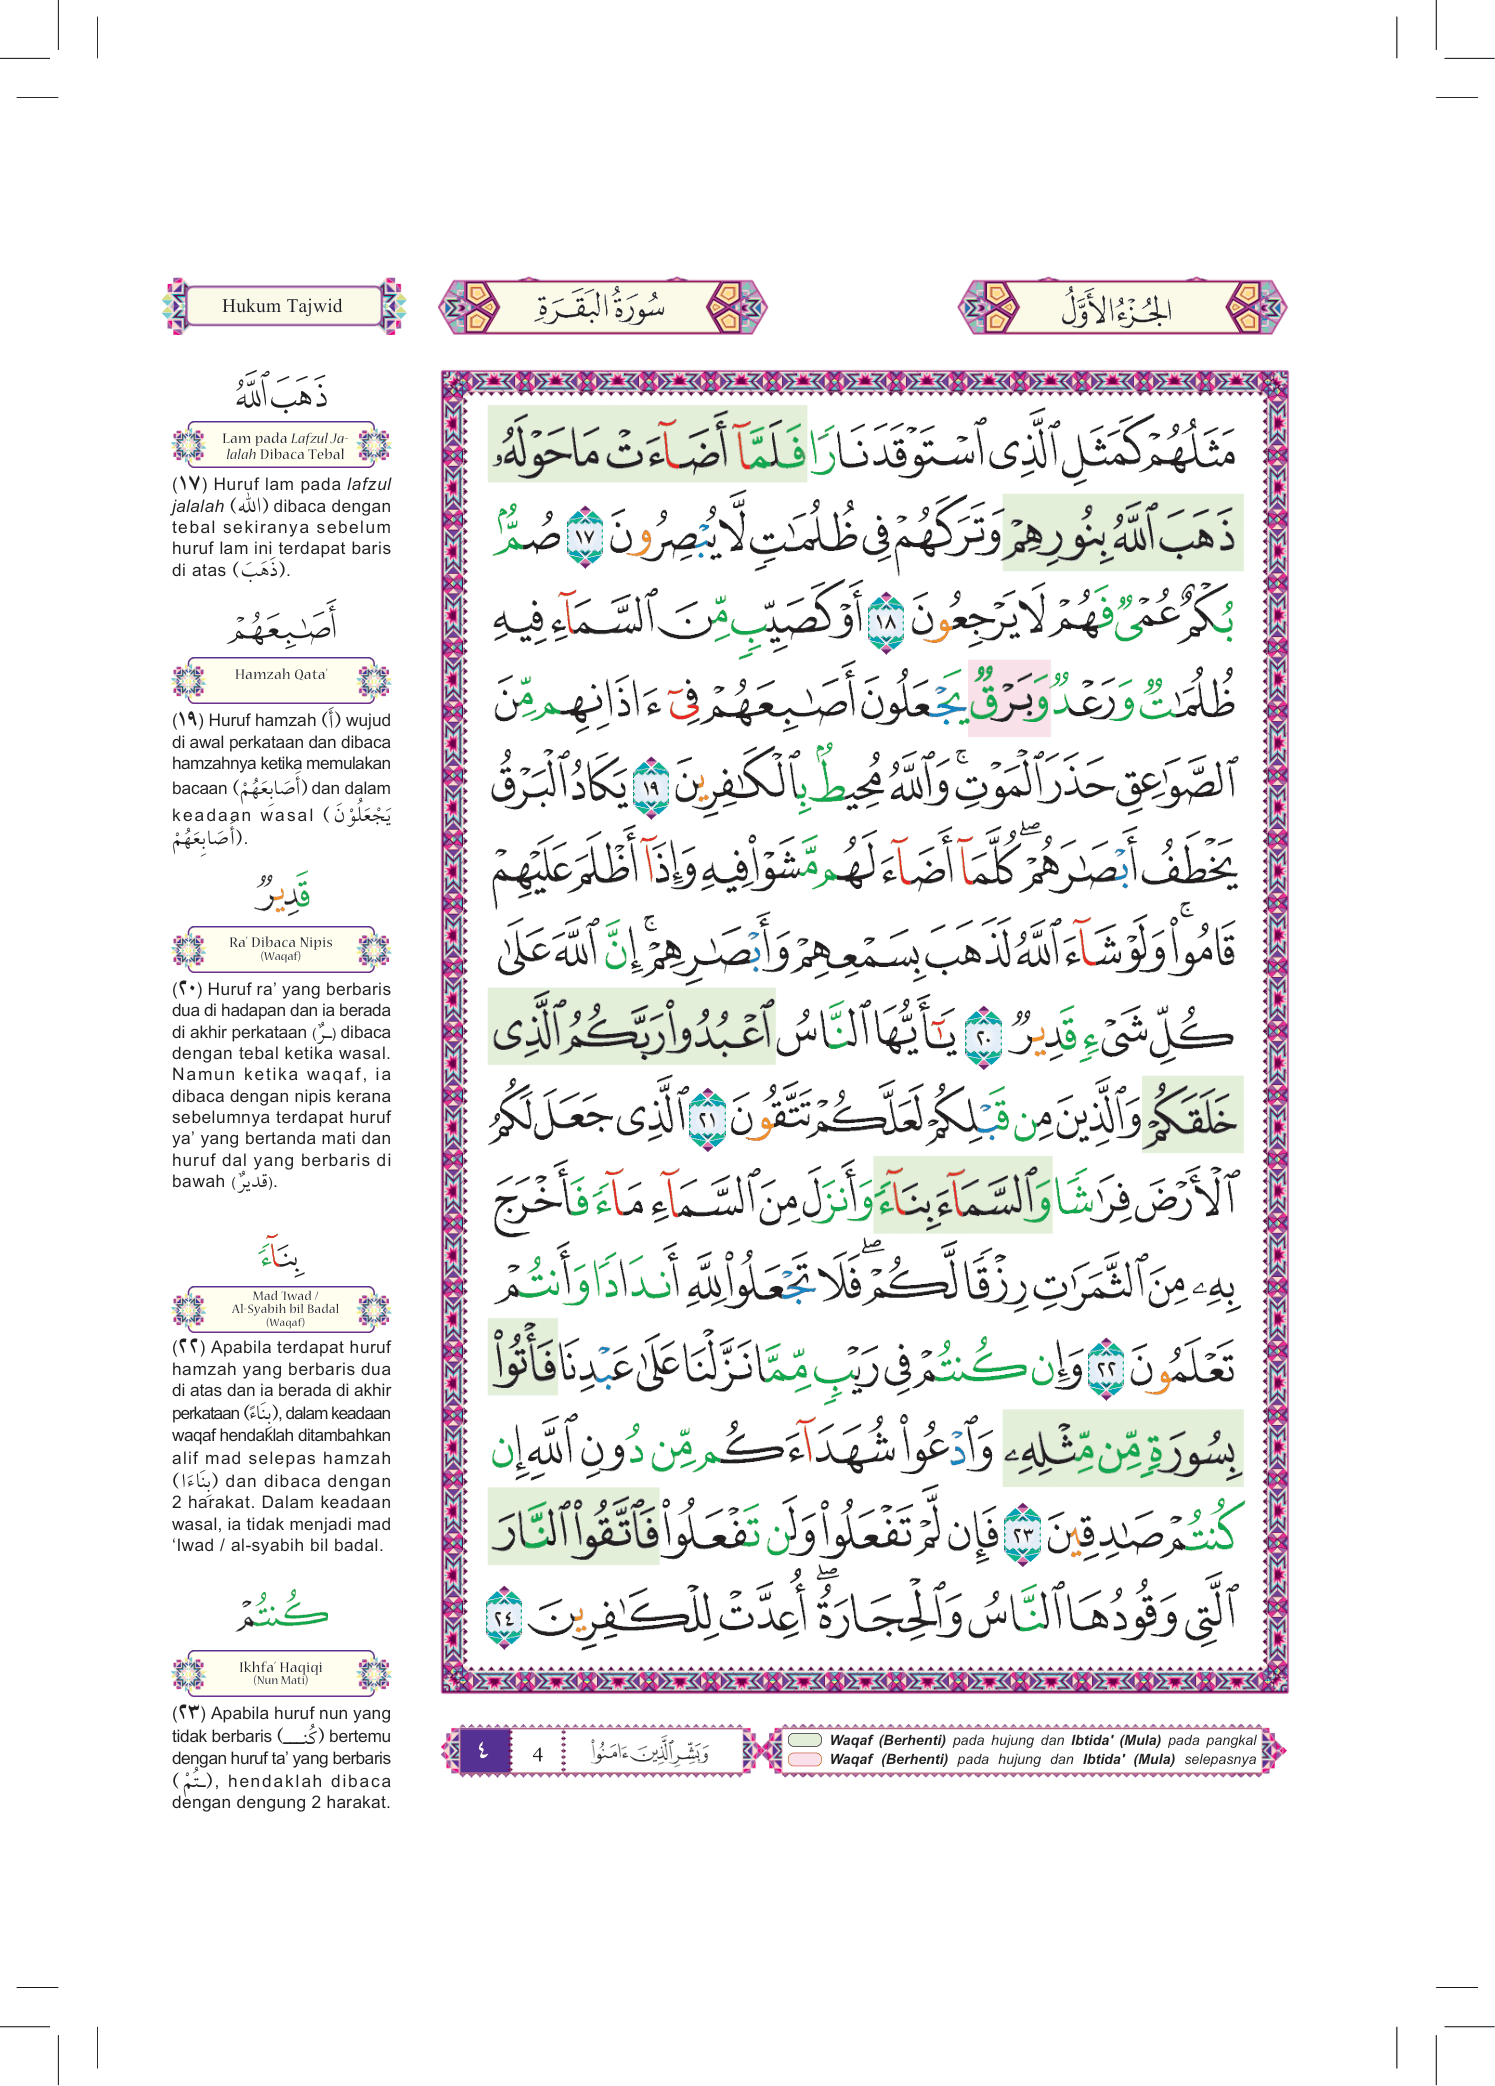 Hukum Tajwid
سُورَةُ البَقَرَةِ
الجُزْءُ الأَوَّلُ
ذَهَبَ ٱللَّهُ
Lam pada Lafzul Ja-
lalah Dibaca Tebal
(١٧) Huruf lam pada lafzul
jalalah (الله) dibaca dengan
tebal sekiranya sebelum
huruf lam ini terdapat baris
di atas (ذَهَبَ).
أَصَـٰبِعَهُمْ
Hamzah Qata'
(١٩) Huruf hamzah (أَ) wujud
di awal perkataan dan dibaca
hamzahnya ketika memulakan
bacaan (أَصَابِعَهُمْ) dan dalam
keadaan wasal (يَجْعَلُوْنَ
أَصَابِعَهُمْ).
قَدِيرٌ
Ra' Dibaca Nipis
(Waqaf)
(٢٠) Huruf ra’ yang berbaris
dua di hadapan dan ia berada
di akhir perkataan (ـرٌ) dibaca
dengan tebal ketika wasal.
Namun ketika waqaf, ia
dibaca dengan nipis kerana
sebelumnya terdapat huruf
ya’ yang bertanda mati dan
huruf dal yang berbaris di
bawah (قديرٌ).
بِنَآءً
Mad 'Iwad /
Al-Syabih bil Badal
(Waqaf)
(٢٢) Apabila terdapat huruf
hamzah yang berbaris dua
di atas dan ia berada di akhir
perkataan (بِنَاءً), dalam keadaan
waqaf hendaklah ditambahkan
alif mad selepas hamzah
(بِنَاءَا) dan dibaca dengan
2 harakat. Dalam keadaan
wasal, ia tidak menjadi mad
‘Iwad / al-syabih bil badal.
كُنتُمْ
Ikhfa' Haqiqi
(Nun Mati)
(٢٣) Apabila huruf nun yang
tidak berbaris (كُنـــ) bertemu
dengan huruf ta’ yang berbaris
(ـتُمْ), hendaklah dibaca
dengan dengung 2 harakat.
مَثَلُهُمْ كَمَثَلِ ٱلَّذِى ٱسْتَوْقَدَ نَارًا فَلَمَّآ أَضَآءَتْ مَا حَوْلَهُۥ
ذَهَبَ ٱللَّهُ بِنُورِهِمْ وَتَرَكَهُمْ فِى ظُلُمَـٰتٍ لَّا يُبْصِرُونَ ١٧ صُمٌّۢ
بُكْمٌ عُمْىٌ فَهُمْ لَا يَرْجِعُونَ ١٨ أَوْ كَصَيِّبٍ مِّنَ ٱلسَّمَآءِ فِيهِ
ظُلُمَـٰتٌ وَرَعْدٌ وَبَرْقٌ يَجْعَلُونَ أَصَـٰبِعَهُمْ فِىٓ ءَاذَانِهِم مِّنَ
ٱلصَّوَٰعِقِ حَذَرَ ٱلْمَوْتِ ۚ وَٱللَّهُ مُحِيطٌۢ بِٱلْكَـٰفِرِينَ ١٩ يَكَادُ ٱلْبَرْقُ
يَخْطَفُ أَبْصَـٰرَهُمْ ۖ كُلَّمَآ أَضَآءَ لَهُم مَّشَوْا۟ فِيهِ وَإِذَآ أَظْلَمَ عَلَيْهِمْ
قَامُوا۟ ۚ وَلَوْ شَآءَ ٱللَّهُ لَذَهَبَ بِسَمْعِهِمْ وَأَبْصَـٰرِهِمْ ۚ إِنَّ ٱللَّهَ عَلَىٰ
كُلِّ شَىْءٍ قَدِيرٌ ٢٠ يَـٰٓأَيُّهَا ٱلنَّاسُ ٱعْبُدُوا۟ رَبَّكُمُ ٱلَّذِى
خَلَقَكُمْ وَٱلَّذِينَ مِن قَبْلِكُمْ لَعَلَّكُمْ تَتَّقُونَ ٢١ ٱلَّذِى جَعَلَ لَكُمُ
ٱلْأَرْضَ فِرَٰشًا وَٱلسَّمَآءَ بِنَآءً وَأَنزَلَ مِنَ ٱلسَّمَآءِ مَآءً فَأَخْرَجَ
بِهِۦ مِنَ ٱلثَّمَرَٰتِ رِزْقًا لَّكُمْ ۖ فَلَا تَجْعَلُوا۟ لِلَّهِ أَندَادًا وَأَنتُمْ
تَعْلَمُونَ ٢٢ وَإِن كُنتُمْ فِى رَيْبٍ مِّمَّا نَزَّلْنَا عَلَىٰ عَبْدِنَا فَأْتُوا۟
بِسُورَةٍ مِّن مِّثْلِهِۦ وَٱدْعُوا۟ شُهَدَآءَكُم مِّن دُونِ ٱللَّهِ إِن
كُنتُمْ صَـٰدِقِينَ ٢٣ فَإِن لَّمْ تَفْعَلُوا۟ وَلَن تَفْعَلُوا۟ فَٱتَّقُوا۟ ٱلنَّارَ
ٱلَّتِى وَقُودُهَا ٱلنَّاسُ وَٱلْحِجَارَةُ ۖ أُعِدَّتْ لِلْكَـٰفِرِينَ ٢٤
٤ 4 وَبَشِّرِ ٱلَّذِينَ ءَامَنُوا۟
Waqaf (Berhenti) pada hujung dan Ibtida' (Mula) pada pangkal
Waqaf (Berhenti) pada hujung dan Ibtida' (Mula) selepasnya